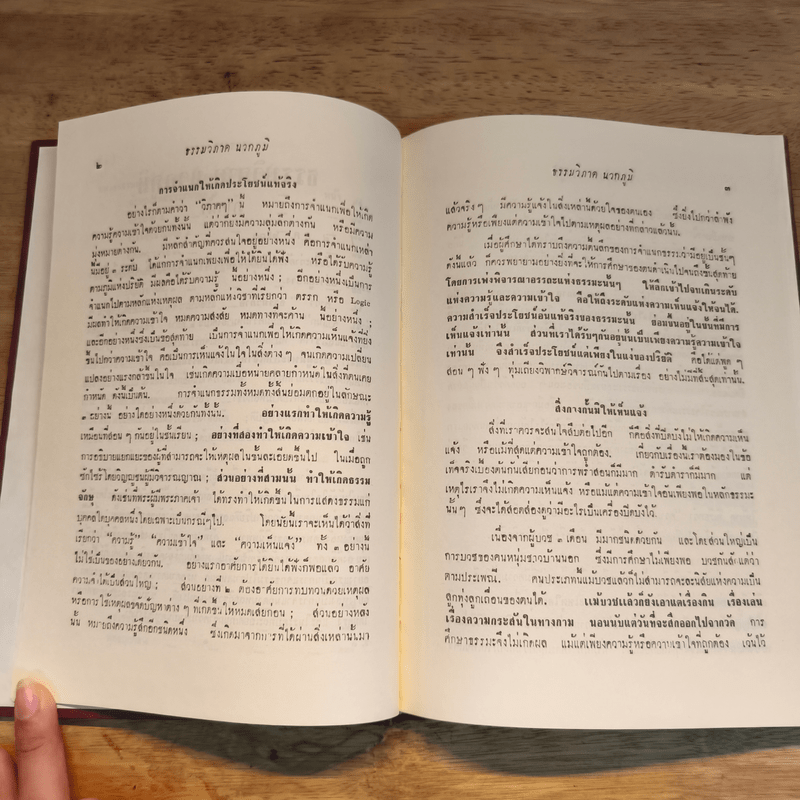 ๒
ธรรมวิภาค นวกภูมิ
การจำแนกให้เกิดประโยชน์แท้จริง
อย่างไรก็ตามคำว่า “วิภาคๆ” นี้ หมายถึงการจำแนกเพื่อให้เกิด
ความรู้ความเข้าใจด้วยกันทั้งนั้น แต่ว่าก็ยังมีความลุ่มลึกต่างกัน หรือมีความ
มุ่งหมายต่างกัน. มีหลักสำคัญที่ควรสนใจอยู่อย่างหนึ่ง คือการจำแนกเหล่า
นี้มีอยู่ ๓ ระดับ ได้แก่การจำแนกเพียงเพื่อให้ได้ยินได้ฟัง หรือให้ได้รับความรู้
ตามภูมิแห่งปริยัติ มีผลคือได้รับความรู้ นี้อย่างหนึ่ง; อีกอย่างหนึ่งเป็นการ
จำแนกไปตามหลักแห่งเหตุผล ตามหลักแห่งวิชาที่เรียกว่า ตรรก หรือ Logic
มีผลทำให้เกิดความเข้าใจ หมดความสงสัย หมดทางที่จะค้าน นี้อย่างหนึ่ง;
และอีกอย่างหนึ่งซึ่งเป็นข้อสุดท้าย เป็นการจำแนกเพื่อให้เกิดความเห็นแจ้งที่ยิ่ง
ขึ้นไปกว่าความเข้าใจ คือเป็นการเห็นแจ้งในใจในสิ่งต่าง ๆ จนเกิดความเปลี่ยน
แปลงอย่างแรงกล้าขึ้นในใจ เช่นเกิดความเบื่อหน่ายคลายกำหนัดในสิ่งที่ตนเคย
กำหนัด ดังนี้เป็นต้น. การจำแนกธรรมทั้งหมดทั้งสิ้นย่อมตกอยู่ในลักษณะ
๓ อย่างนี้ อย่างใดอย่างหนึ่งด้วยกันทั้งนั้น. อย่างแรกทำให้เกิดความรู้
เหมือนที่สอน ๆ กันอยู่ในชั้นเรียน; อย่างที่สองทำให้เกิดความเข้าใจ เช่น
การอธิบายแยกแยะของผู้ที่สามารถจะให้เหตุผลในชั้นละเอียดขึ้นไป ในเมื่อถูก
ซักไซ้โดยวิญญูชนผู้มีวิจารณญาณ; ส่วนอย่างที่สามนั้น ทำให้เกิดธรรม
จักษุ ดังเช่นที่พระผู้มีพระภาคเจ้า ได้ทรงทำให้เกิดขึ้นในการแสดงธรรมแก่
บุคคลใดบุคคลหนึ่งโดยเฉพาะเป็นกรณีๆ ไป. โดยนัยนี้เราจะเห็นได้ว่าสิ่งที่
เรียกว่า “ความรู้” “ความเข้าใจ” และ “ความเห็นแจ้ง” ทั้ง ๓ อย่างนี้
ไม่ใช่เป็นของอย่างเดียวกัน. อย่างแรกอาศัยการได้ยินได้ฟังก็พอแล้ว อาศัย
ความจำได้เป็นส่วนใหญ่; ส่วนอย่างที่ ๒ ต้องอาศัยการทบทวนด้วยเหตุผล
หรือการใช้เหตุผลขจัดปัญหาต่าง ๆ ที่เกิดขึ้นให้หมดเสียก่อน; ส่วนอย่างหลัง
นั้น หมายถึงความรู้สึกอีกชนิดหนึ่ง ซึ่งเกิดมาจากการที่ได้ผ่านสิ่งเหล่านั้นมา
ธรรมวิภาค นวกภูมิ
๓
แล้วจริงๆ มีความรู้แจ้งในสิ่งเหล่านี้ด้วยใจของตนเอง ซึ่งยิ่งไปกว่าลำพัง
ความรู้หรือเพียงแต่ความเข้าใจไปตามเหตุผลอย่างที่กล่าวแล้วนั้น.
เมื่อผู้ศึกษาได้ทราบถึงความตื้นลึกของการจำแนกธรรมว่ามีอยู่เป็นชั้นๆ
ดังนี้แล้ว ก็ควรพยายามอย่างยิ่งที่จะให้การศึกษาของตนดำเนินไปจนถึงขั้นสุดท้าย
โดยการเพ่งพิจารณาอรรถะแห่งธรรมะนั้นๆ ให้ลึกเข้าไปจนเกินระดับ
แห่งความรู้และความเข้าใจ คือให้ถึงระดับแห่งความเห็นแจ้งให้จนได้.
ความสำเร็จประโยชน์อันแท้จริงของธรรมะนั้น ย่อมขึ้นอยู่ในขั้นที่มีการ
เห็นแจ้งเท่านั้น ส่วนที่เราได้รับๆ กันอยู่นั้นเป็นเพียงความรู้ความเข้าใจ
เท่านั้น จึงสำเร็จประโยชน์แต่เพียงในแง่ของปริยัติ คือได้แต่พูด ๆ
สอน ๆ ฟัง ๆ ทุ่มเถียงวิพากษ์วิจารณ์กันไปตามเรื่อง อย่างไม่มีที่สิ้นสุดเท่านั้น.
สิ่งกางกั้นมิให้เห็นแจ้ง
สิ่งที่เราควรจะสนใจสืบต่อไปอีก ก็คือสิ่งที่ปิดบังไม่ให้เกิดความเห็น
แจ้ง หรือแม้ที่สุดแต่ความเข้าใจถูกต้อง. เกี่ยวกับเรื่องนี้เราต้องมองในข้อ
เท็จจริงเบื้องต้นกันเสียก่อนว่าการพร่ำสอนก็มีมาก ตำรับตำราก็มีมาก แต่
เหตุไรเราจึงไม่เกิดความเห็นแจ้ง หรือแม้แต่ความเข้าใจอันเพียงพอในหลักธรรมะ
นั้นๆ ซึ่งจะได้สอดส่องดูว่ามีอะไรเป็นเครื่องปิดบังไว้.
เนื่องจากผู้บวช ๓ เดือน มีมากชนิดด้วยกัน และโดยส่วนใหญ่เป็น
การบวชของคนหนุ่มชาวบ้านนอก ซึ่งมีการศึกษาไม่เพียงพอ บวชกันสักแต่ว่า
ตามประเพณี. คนประเภทนี้แม้บวชแล้วก็ไม่สามารถจะละนิสัยแห่งความเป็น
ลูกทุ่งลูกเถื่อนของตนได้. แม้บวชแล้วก็ยังเอาแต่เรื่องกิน เรื่องเล่น
เรื่องความกระสันในทางกาม นอนนับแต่วันที่จะสึกออกไปจากวัด การ
ศึกษาธรรมะจึงไม่เกิดผล แม้แต่เพียงความรู้หรือความเข้าใจที่ถูกต้อง เว้นไว้